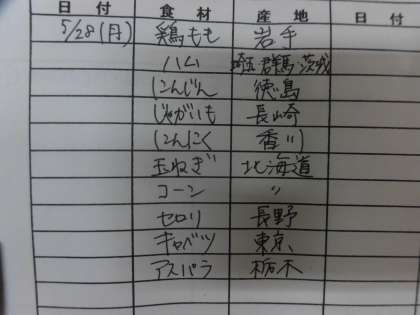 日付 食材 産地 日付
5/28(月) 鶏もも 岩手
ハム 埼玉・群馬・茨城
にんじん 徳島
じゃがいも 長崎
にんにく 香川
玉ねぎ 北海道
コーン 〃
セロリ 長野
キャベツ 東京
アスパラ 栃木